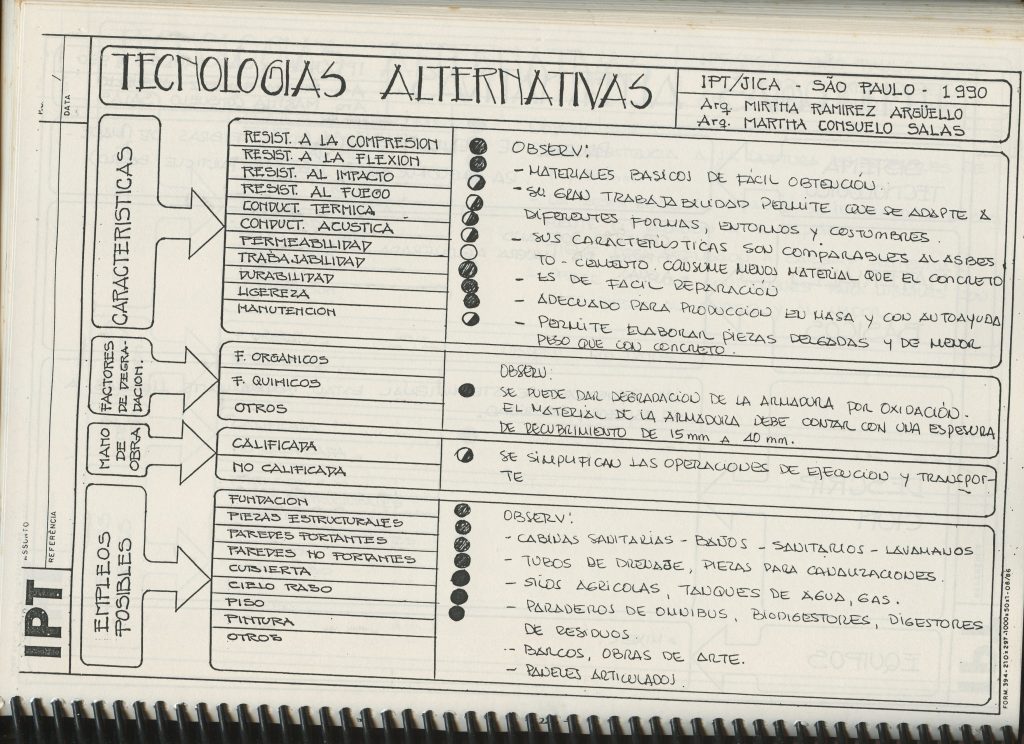 TECNOLOGIAS ALTERNATIVAS
IPT/JICA SÃO PAULO - 1990
Arq. MIRTHA RAMIREZ ARGÜELLO
Arq. MARTHA CONSUELO SALAS
DATA
CARACTERISTICAS
RESIST. A LA COMPRESION
RESIST. A LA FLEXION
RESIST. AL IMPACTO
RESIST. AL FUEGO
CONDUCT. TERMICA
CONDUCT. ACUSTICA
PERMEABILIDAD
TRABAJABILIDAD
DURABILIDAD
LIGEREZA
MANUTENCION
OBSERV:
- MATERIALES BASICOS DE FÁCIL OBTENCIÓN.
- SU GRAN TRABAJABILIDAD PERMITE QUE SE ADAPTE A
DIFERENTES FORMAS, ENTORNOS Y COSTUMBRES.
- SUS CARACTERISTICAS SON COMPARABLES AL ASBES
TO - CEMENTO. CONSUME MENOS MATERIAL QUE EL CONCRETO
- ES DE FACIL REPARACIÓN
- ADECUADO PARA PRODUCCION EN MASA Y CON AUTOAYUDA
- PERMITE ELABORAR PIEZAS DELGADAS Y DE MENOR
PESO QUE CON CONCRETO.
FACTORES
DE DEGRA-
DACION.
F. ORGANICOS
F. QUIMICOS
OTROS
OBSERV:
SE PUEDE DAR DEGRADACIÓN DE LA ARMADURA POR OXIDACIÓN.
EL MATERIAL DE LA ARMADURA DEBE CONTAR CON UNA ESPESURA
DE RECUBRIMIENTO DE 15 mm A 40 mm.
MANO
DE
OBRA
CALIFICADA
NO CALIFICADA
SE SIMPLIFICAN LAS OPERACIONES DE EJECUCION Y TRANSPOR-
TE
EMPLEOS
POSIBLES
FUNDACION
PIEZAS ESTRUCTURALES
PAREDES PORTANTES
PAREDES NO PORTANTES
CUBIERTA
CIELO RASO
PISO
PINTURA
OTROS
OBSERV:
- CABINAS SANITARIAS - BAÑOS - SANITARIOS - LAVAMANOS
- TUBOS DE DRENAJE, PIEZAS PARA CANALIZACIONES.
- SILOS AGRICOLAS, TANQUES DE AGUA, GAS.
- PARADEROS DE OMNIBUS, BIODIGESTORES, DIGESTORES
DE RESIDUOS
- BARCOS, OBRAS DE ARTE.
- PANELES ARTICULADOS.
ASSUNTO
REFERÊNCIA
IPT